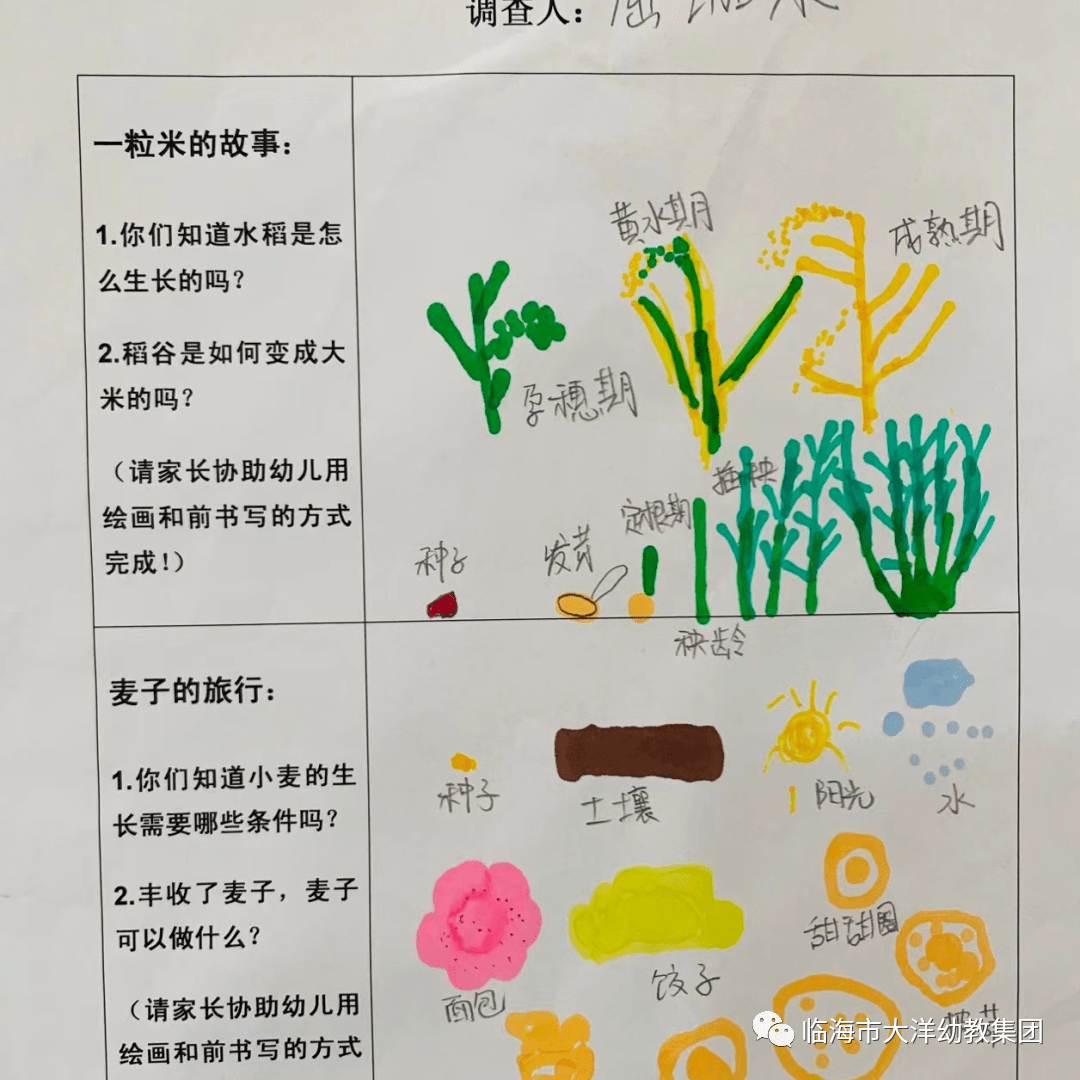 调查人：
一粒米的故事：
1.你们知道水稻是怎
么生长的吗？
2.稻谷是如何变成大
米的吗？
（请家长协助幼儿用
绘画和前书写的方式
完成！）
黄水期
成熟期
孕穗期
插秧
定根期
发芽
种子
秧龄
麦子的旅行：
1.你们知道小麦的生
长需要哪些条件吗？
2.丰收了麦子，麦子
可以做什么？
（请家长协助幼儿用
绘画和前书写的方式
种子
土壤
阳光
水
面包
饺子
甜甜圈
临海市大洋幼教集团